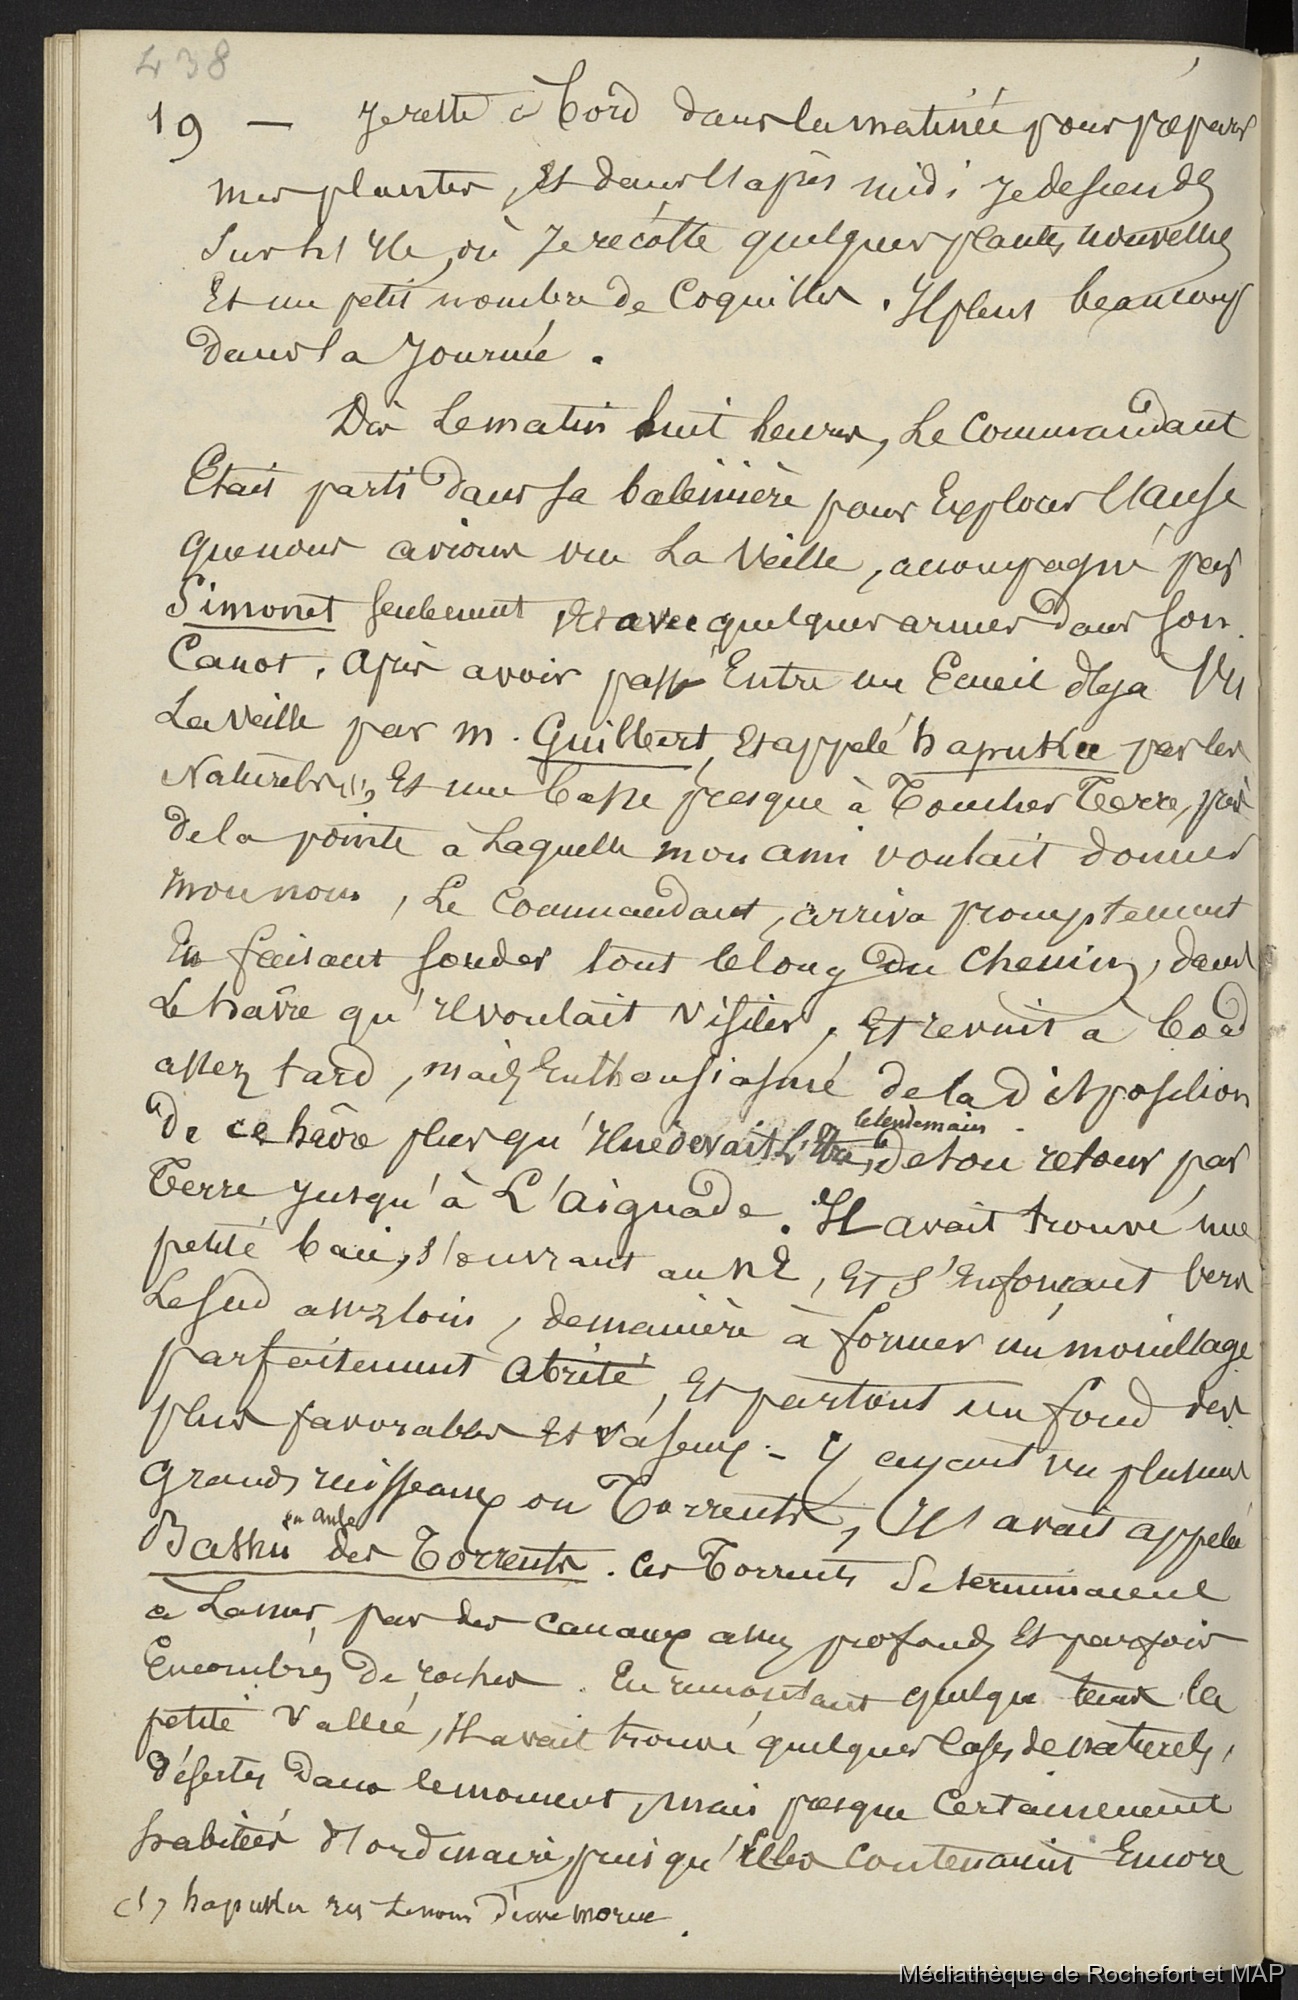 438
19 — Je reste à bord dans la matinée pour préparer
mes plantes, Et dans l'après midi Je descends
Sur l'Ile, où Je récolte quelques plantes nouvelles
Et un petit nombre de Coquilles. Il pleut beaucoup
dans la Journée.
Dès Le matin huit heures, Le Commandant
Etait parti dans sa baleinière pour Explorer l'anse
que nous avions vu La Veille, accompagné par
Simonet seulement Et avec quelques armes dans son
Canot. Après avoir passé Entre un Ecueil déja Vu
La Veille par M. Guilbert, Et appelé hapuska par les
Naturels (1), Et une basse presque à Toucher Terre, près
de la pointe à Laquelle mon ami voulait donner
mon nom, Le Commandant, arriva promptement
En faisant sonder tout le long du Chemin, dans
Le havre qu'Il voulait visiter, Et revint à bord
assez tard, mais Enthousiasmé de la disposition
De ce havre plus qu'Il ne devait L'Etre, le lendemain de son retour par
Terre Jusqu'à L'Aiguade. Il avait trouvé une
petite baie, s'ouvrant au NE, Et S'Enfonçant Vers
Le Sud assez loin, de manière à former un mouillage
parfaitement abrité, Et partout un fond des
plus favorables Et vaseux. - Y ayant vu plusieurs
Grands ruisseaux ou Torrents, Il l'avait appelé
Bassin ou Anse des Torrents. Ces Torrents Se terminaient
à La mer, par des Canaux assez profonds Et parfois
Encombrés De rochers. En remontant quelque tems la
petite Vallée, Il avait trouvé quelques Cases de naturels,
Désertes Dans le moment, mais presque Certainement
habitées d'ordinaire, puisqu'Elles Contenaient Encore
(1) hapuska Est Le nom d'une morue.
Médiathèque de Rochefort et MAP